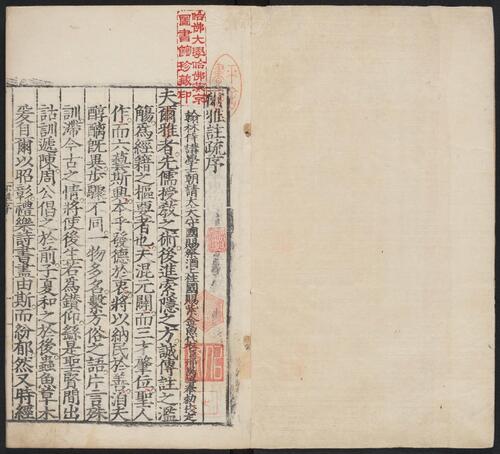 爾雅註疏序
翰林侍講學士朝請大夫守國子祭酒上柱國賜紫金魚袋臣邢昺等奉勑校定
夫爾雅者先儒授教之術後進索隱之方誠傳註之濫
觴為經籍之樞要者也夫混元闢而三才肇位聖人
作而六藝斯興本乎發德於衷將以納民於善洎夫
醇醨既異步驟不同一物多名繫方俗之語片言殊
訓滯今古之情將使後生若為鑽仰繇是聖賢間出
詁訓遞陳周公倡之於前子夏和之於後蟲魚草木
爰自爾以昭彰禮樂詩書盡由斯而紛郁然又時經
哈佛大學哈佛燕京
圖書館珍藏印